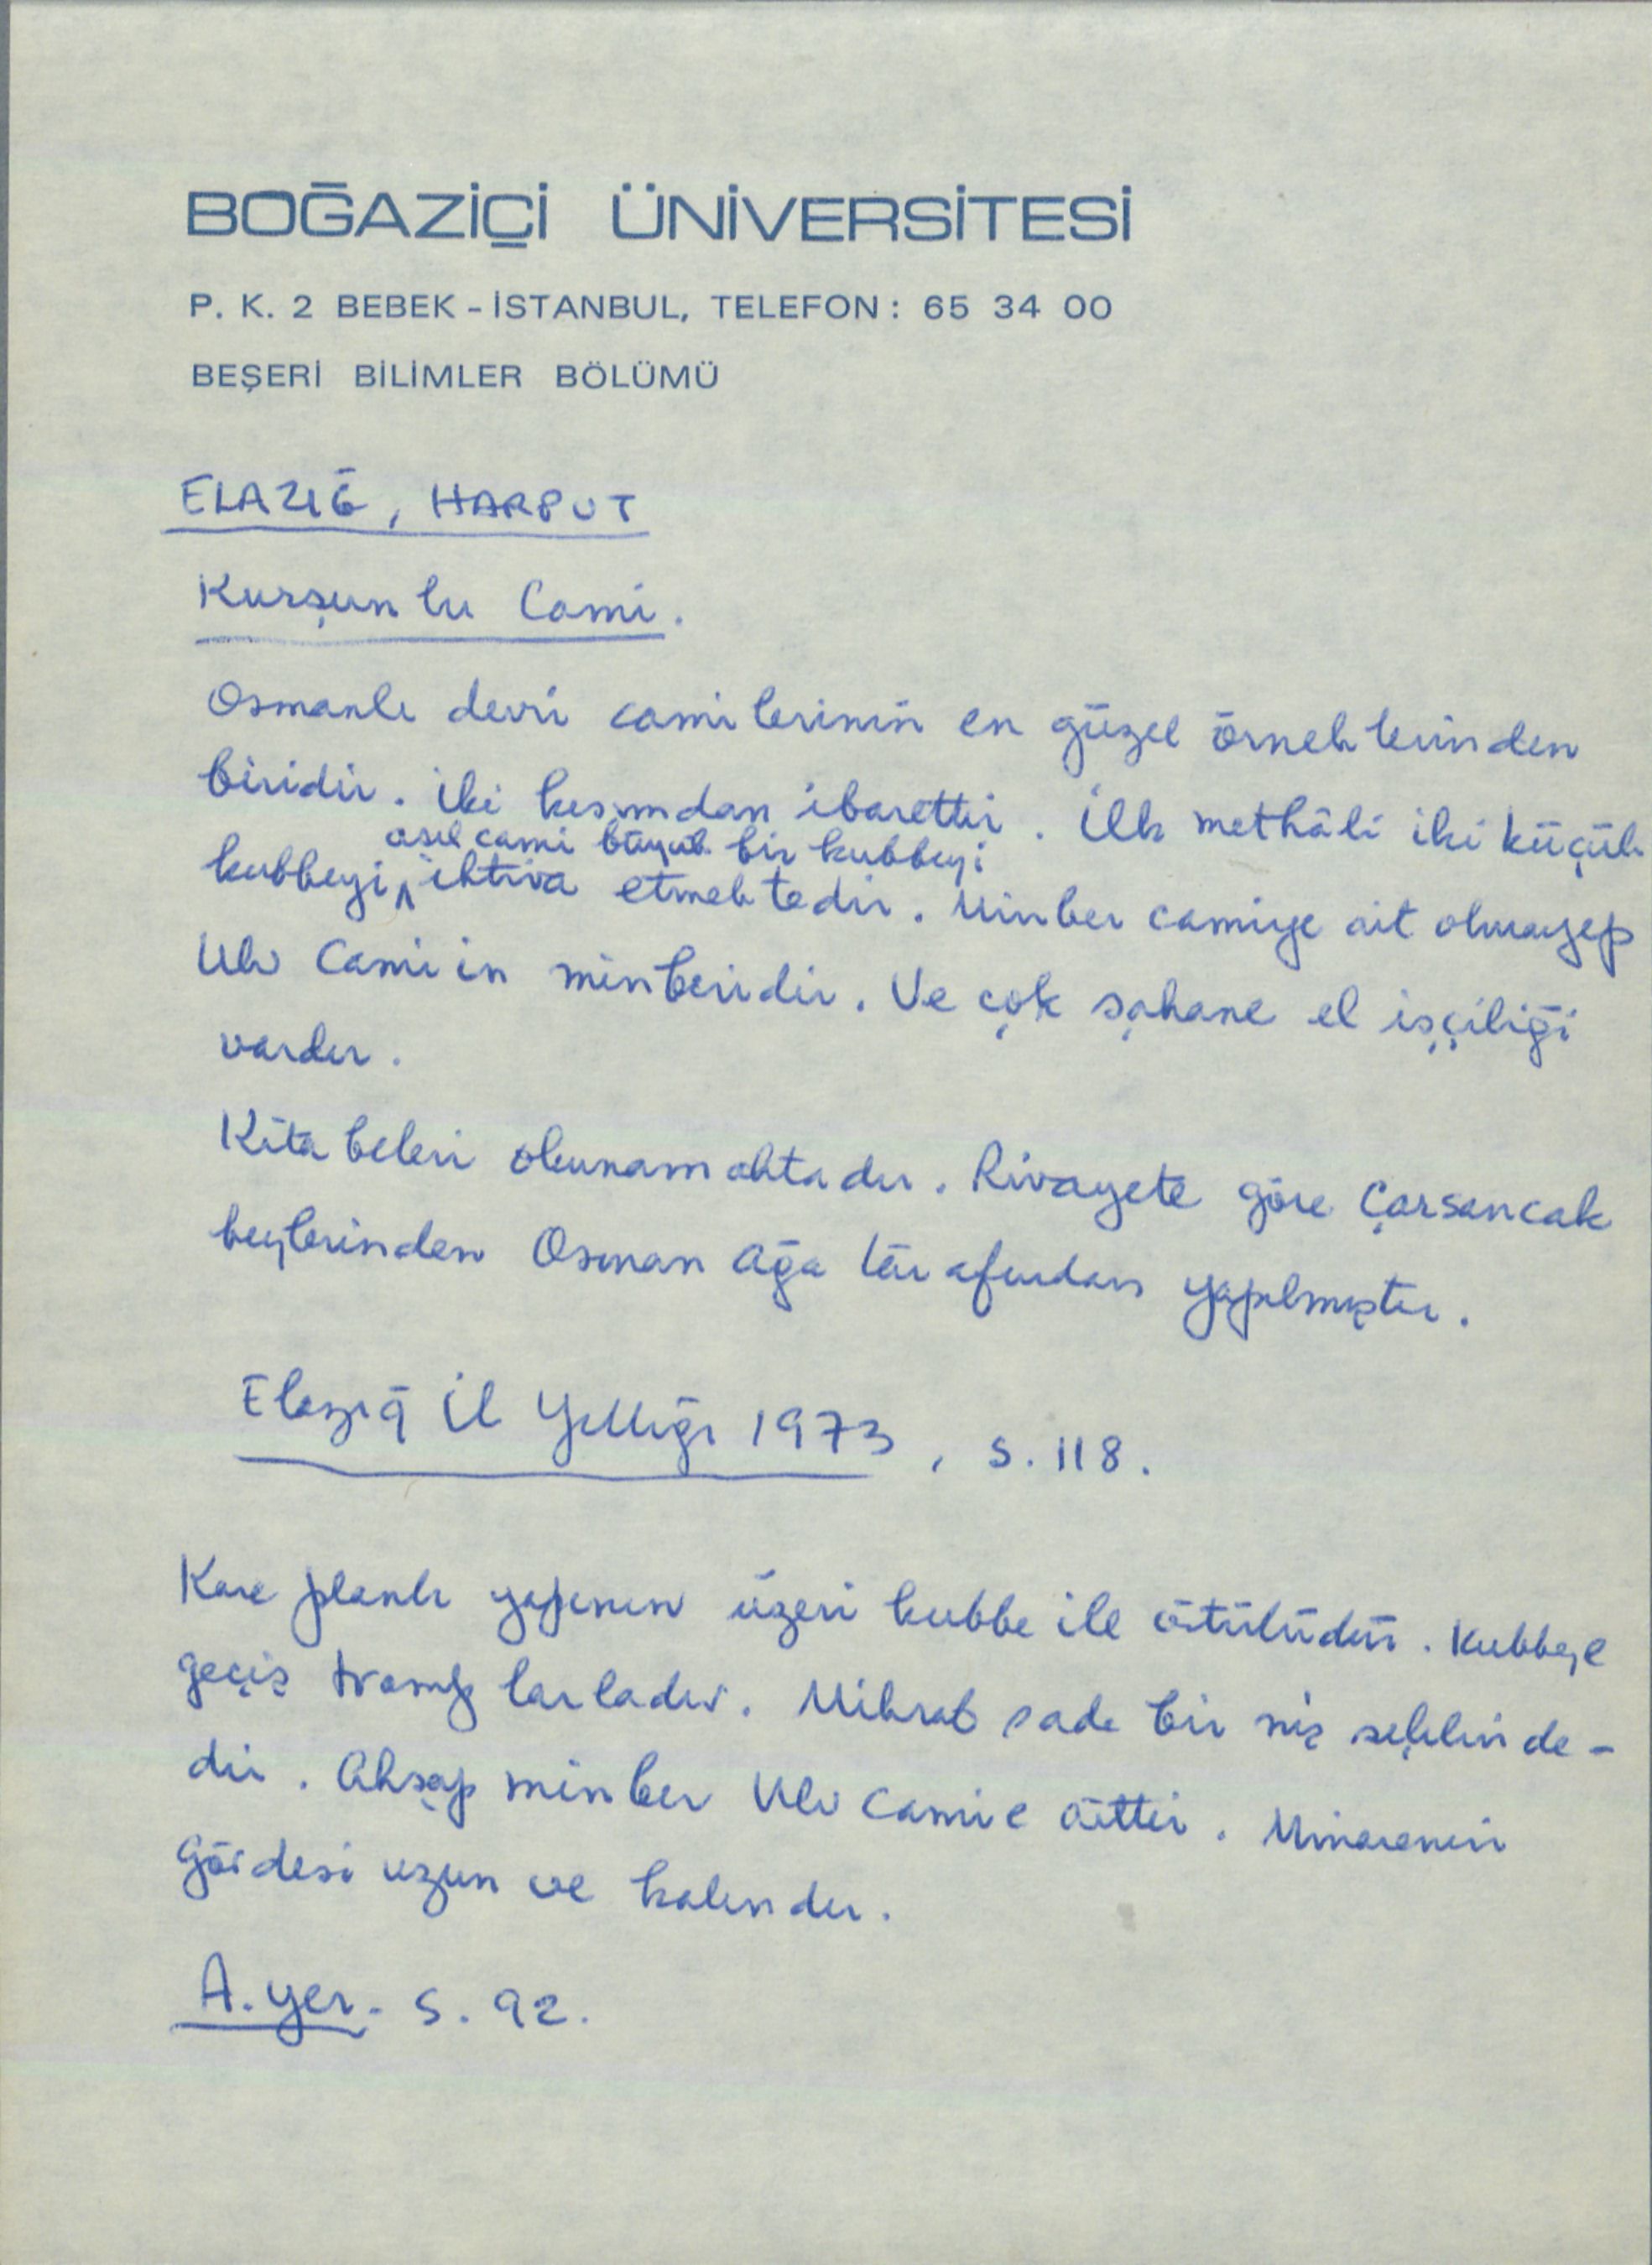 BOĞAZİÇİ ÜNİVERSİTESİ
P. K. 2 BEBEK - İSTANBUL, TELEFON : 65 34 00
BEŞERİ BİLİMLER BÖLÜMÜ
ELAZIĞ, HARPUT
Kurşunlu Cami.
Osmanlı devri camilerinin en güzel örneklerinden
biridir. İki kısımdan ibarettir. İlk methâli iki küçük
asıl cami büyük bir kubbeyi
kubbeyi ihtiva etmektedir. Minber camiye ait olmayıp
Ulu Camiin minberidir. Ve çok şahane el işçiliği
vardır.
Kitabeleri okunamaktadır. Rivayete göre Çarsancak
beylerinden Osman Ağa tarafından yapılmıştır.
Elazığ İl Yıllığı 1973, s. 118.
Kare planlı yapının üzeri kubbe ile örtülüdür. Kubbeye
geçiş tromplarladır. Mihrab sade bir niş şeklinde-
dir. Ahşap minber Ulu Camie aittir. Minarenin
gövdesi uzun ve kalındır.
A. yer. s. 92.